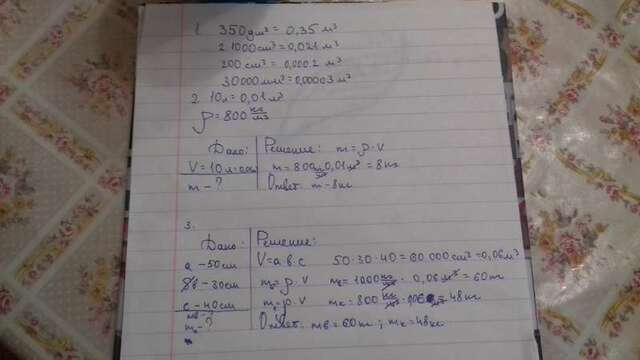 1. 350дм³ = 0.35 м³
2 1000см³ = 0,021 м³
200 см³ = 0,0002 м³
30000мм³ = 0,00003 м³
2. 10л = 0.01 м³
ρ = 800 кг/м³
Дано: Решение: m = ρ · V
V = 10л m = 800 кг/м³ · 0,01 м³ = 8кг
m - ? Ответ: m - 8кг
3.
Дано: Решение:
a - 50см V = a b c 50·30·40 = 60 000см³ = 0,06 м³
b - 30см m = ρ · V m = 1000 кг/м³ · 0,06 м³ = 60 кг
c - 40см m = ρ · V m = 800 кг/м³ · 0,06 = 48кг
mв - ? Ответ: mв = 60кг ; mк = 48кг
mк - ?